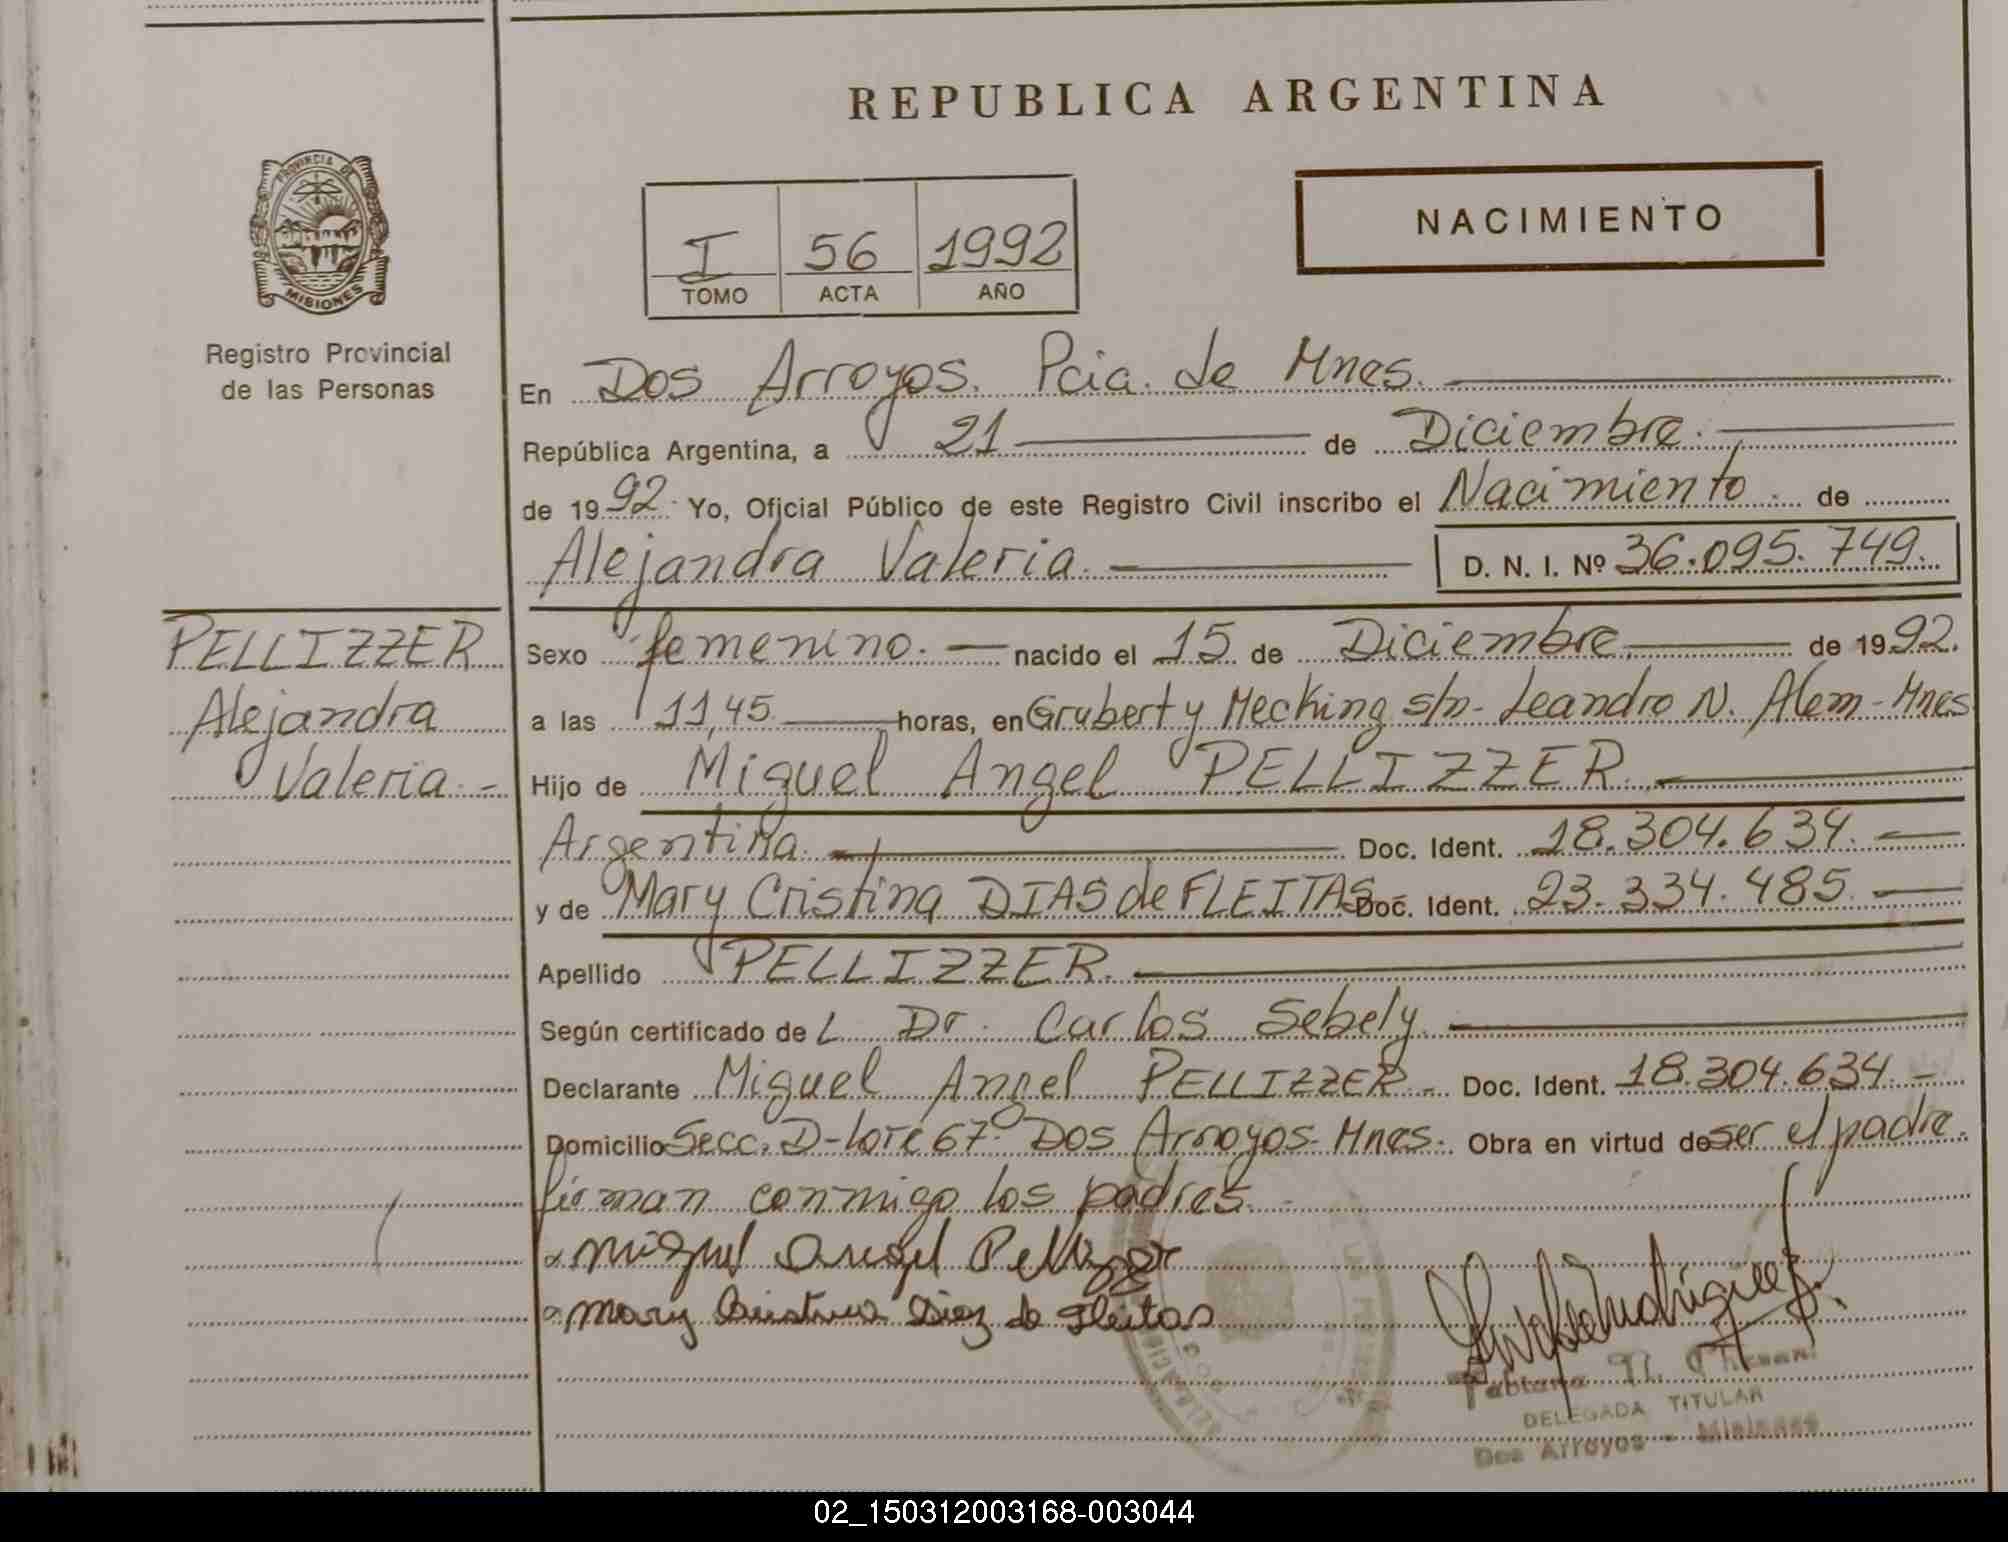 REPUBLICA ARGENTINA
PROVINCIA DE
MISIONES
Registro Provincial
de las Personas
NACIMIENTO
I 56 1992
TOMO ACTA AÑO
En Dos Arroyos. Pcia. de Mnes.
República Argentina, a 21 de Diciembre.
de 1992. Yo, Oficial Público de este Registro Civil inscribo el Nacimiento. de
Alejandra Valeria. D. N. I. Nº 36.095.749.
PELLIZZER
Alejandra
Valeria.-
Sexo femenino. nacido el 15 de Diciembre. de 1992.
a las 11,45 horas, en Grubert y Mecking s/n- Leandro N. Alem-Mnes
Hijo de Miguel Angel PELLIZZER.
Argentina. Doc. Ident. 18.304.634.
y de Mary Cristina DIAS de FLEITAS Doc. Ident. 23.334.485.
Apellido PELLIZZER.
Según certificado de L Dr. Carlos Sebely
Declarante Miguel Angel PELLIZZER- Doc. Ident. 18.304.634.-
Domicilio Secc. D-lote 67- Dos Arroyos-Mnes. Obra en virtud de ser el padre.
firman conmigo los padres.-
Miguel Angel Pellizzer
Mary Cristina Diaz de Fleitas
DELEGADA TITULAR
Dos Arroyos - Misiones
02_150312003168-003044